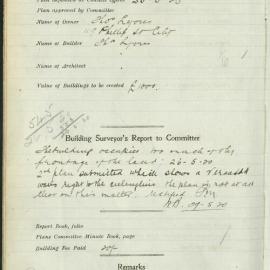 Plan approved by Committee
Name of Owner Thos Lyons
Phillip St City
Name of Builder Thos Lyons
Name of Architect
Value of Buildings to be erected £
Building Surveyor's Report to Committee
The building occupies too much of the
frontage of the land: 26-5-20
2nd plan submitted which shows a Verandah
right to the the plan is not at all
clear on this matter.
Report Book, folio
Plans Committee Minute Book, page
Building Fee Paid 20/-
Remarks